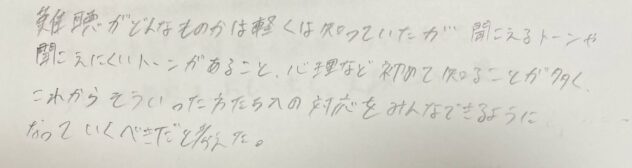 難聴がどんなものかは軽くは知っていたが 聞こえるトーンや
聞こえにくいトーンがあること、心理など初めて知ることが多く、
これからそういった方たちへの対応をみんなできるように
なっていくべきだと考えた。